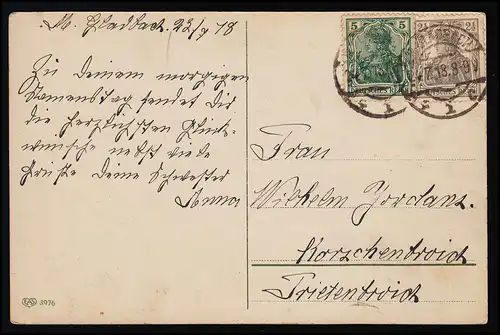 M. Gladbach. 23/7 18
Zu Deinem morgigen
Namenstag sendet Dir
die herzlichsten Glück-
wünsche nebst viele
Grüße Deine Schwester
Anna
5 5
2½ 2½
7.18.8-9
Frau
Wilhelm Jordans.
Korschenbroich
Trietenbroich
EAS 3976